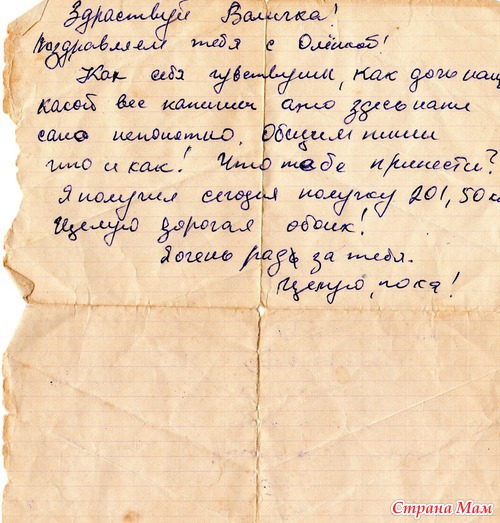 Здраствуй Валичка!
Поздравляем тебя с Олёнкой!
Как себя чувствуеш, как доченаш
какой вес напиши ато здесь нам
само непонятно. Общим пиши
что и как! Что тебе принести?
Я получил сегодня получку 201,50 к
Целую дорогая обоих!
Я очень рад за тебя.
Целую, пока!
Страна Мам